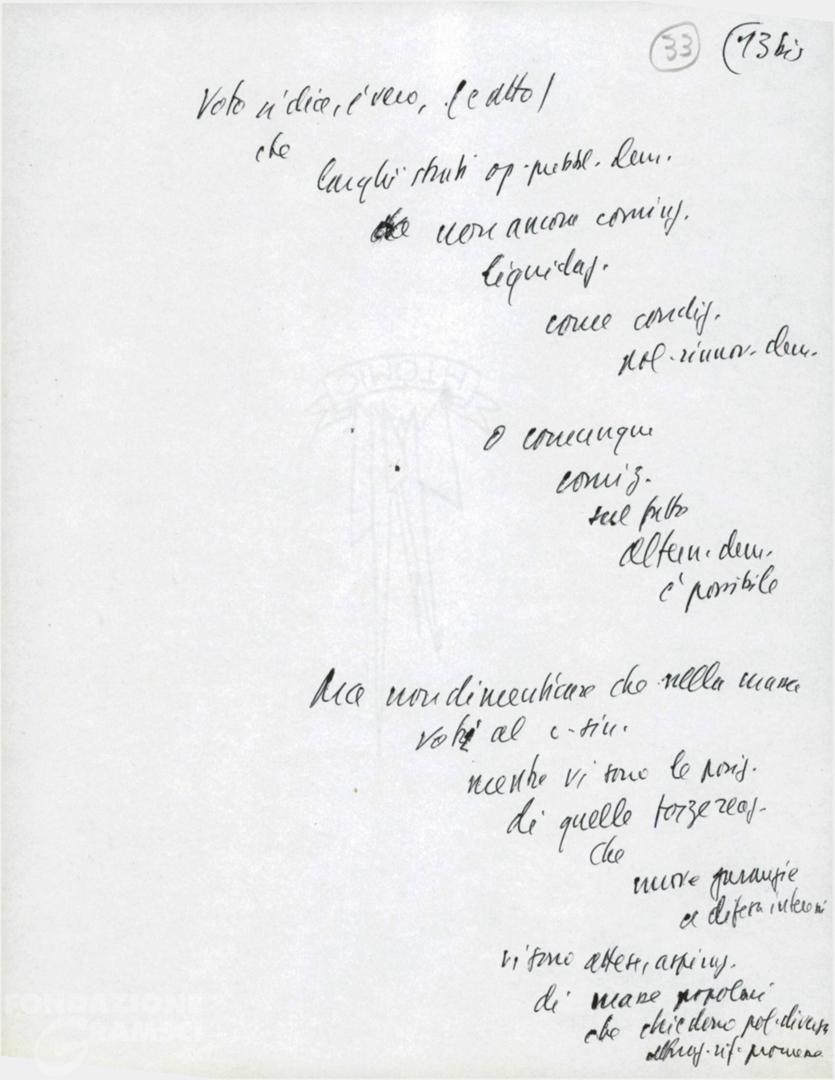 33 (13 bis
Voto ci dice, è vero, (e altro)
che
larghi strati op. pubbl. dem.
non ancora coming.
liquidaz.
come condiz.
pol. rinnov. dem.
o comunque
che
sul fatto
altern. dem.
è possibile
Ma non dimenticare che nella massa
voti al c-sin.
mentre vi sono le posiz.
di quelle forze reaz.
che
nuove garanzie
a difesa interessi
vi sono attese, aspiraz.
di masse popolari
che chiedono pol. diversa
FONDAZIONE
GRAMSCI